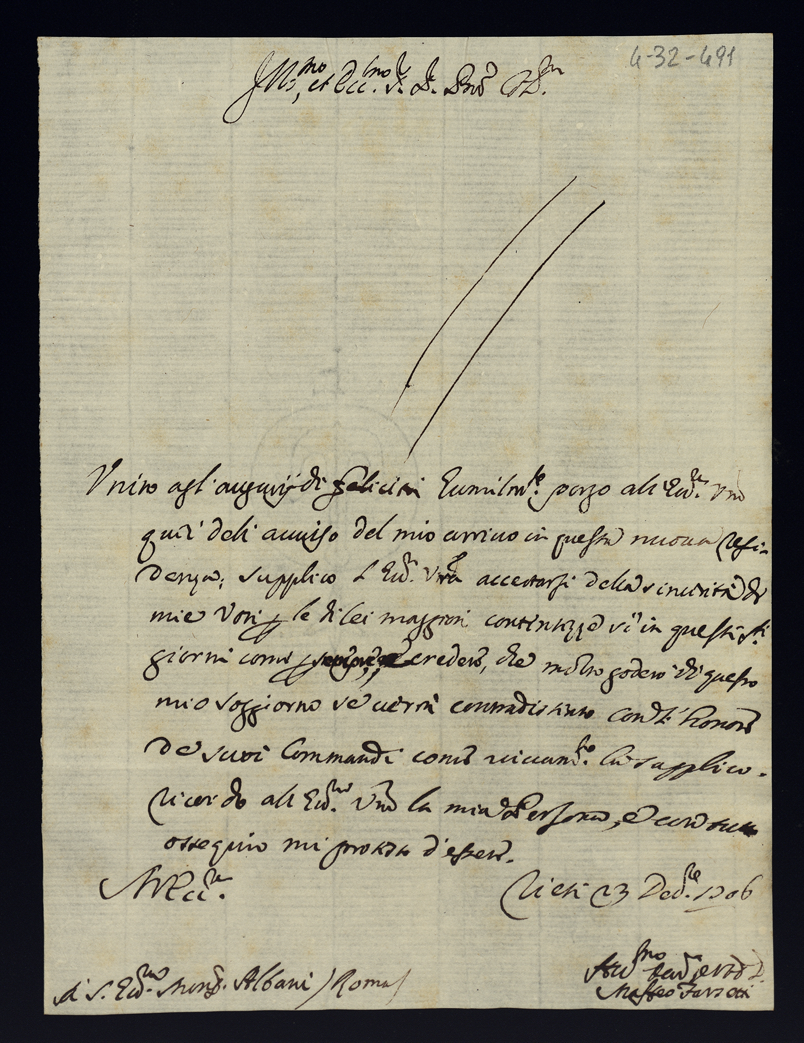 4-32-491
Ill.mo, et Ecc.mo S.r S.r Pron Col.mo
Unito agl'augurij di felicità humilm.te porgo all'Ecc.za Vra
quì del avviso del mio arrivo in questa nuova Resi-
denza; supplico l'Ecc.za Vra accertarsi della sincerità de
miei Voti p le di lei maggiori contentezze sì in questi S.ti
giorni come credere, che molto goderò di questo
mio soggiorno se verrà contradistinto con gl'honori
de suoi Commandi come vivam.te la supplico.
Ricordo all'Ecc.za Vra la mia Persona, e con tutto
ossequio mi protesto d'essere.
Di V. Ecc.za
Rieti 23 Dec.re 1706
di S. Ecc.za Mons.r Albani / Roma /
Hum.mo
Maffeo Farsetti